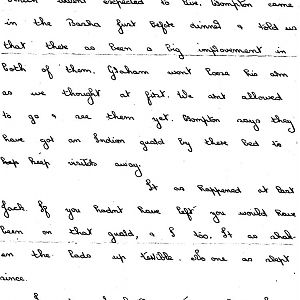 wasnt expected to live. Bompton came
in the Banka just before dinned & told us
that there as been a big improvement in
both of them. Graham wont loose his arm
as we thought at first. We arnt allowed
to go & see them yet. Bompton says they
have got an Indian guald by there bed to
keep keep visitors away.
It as happened at last
Jack. If you hadnt have left you would have
been on that guald, & I too. It as shook
en the lads up terible. No one as slept
since.